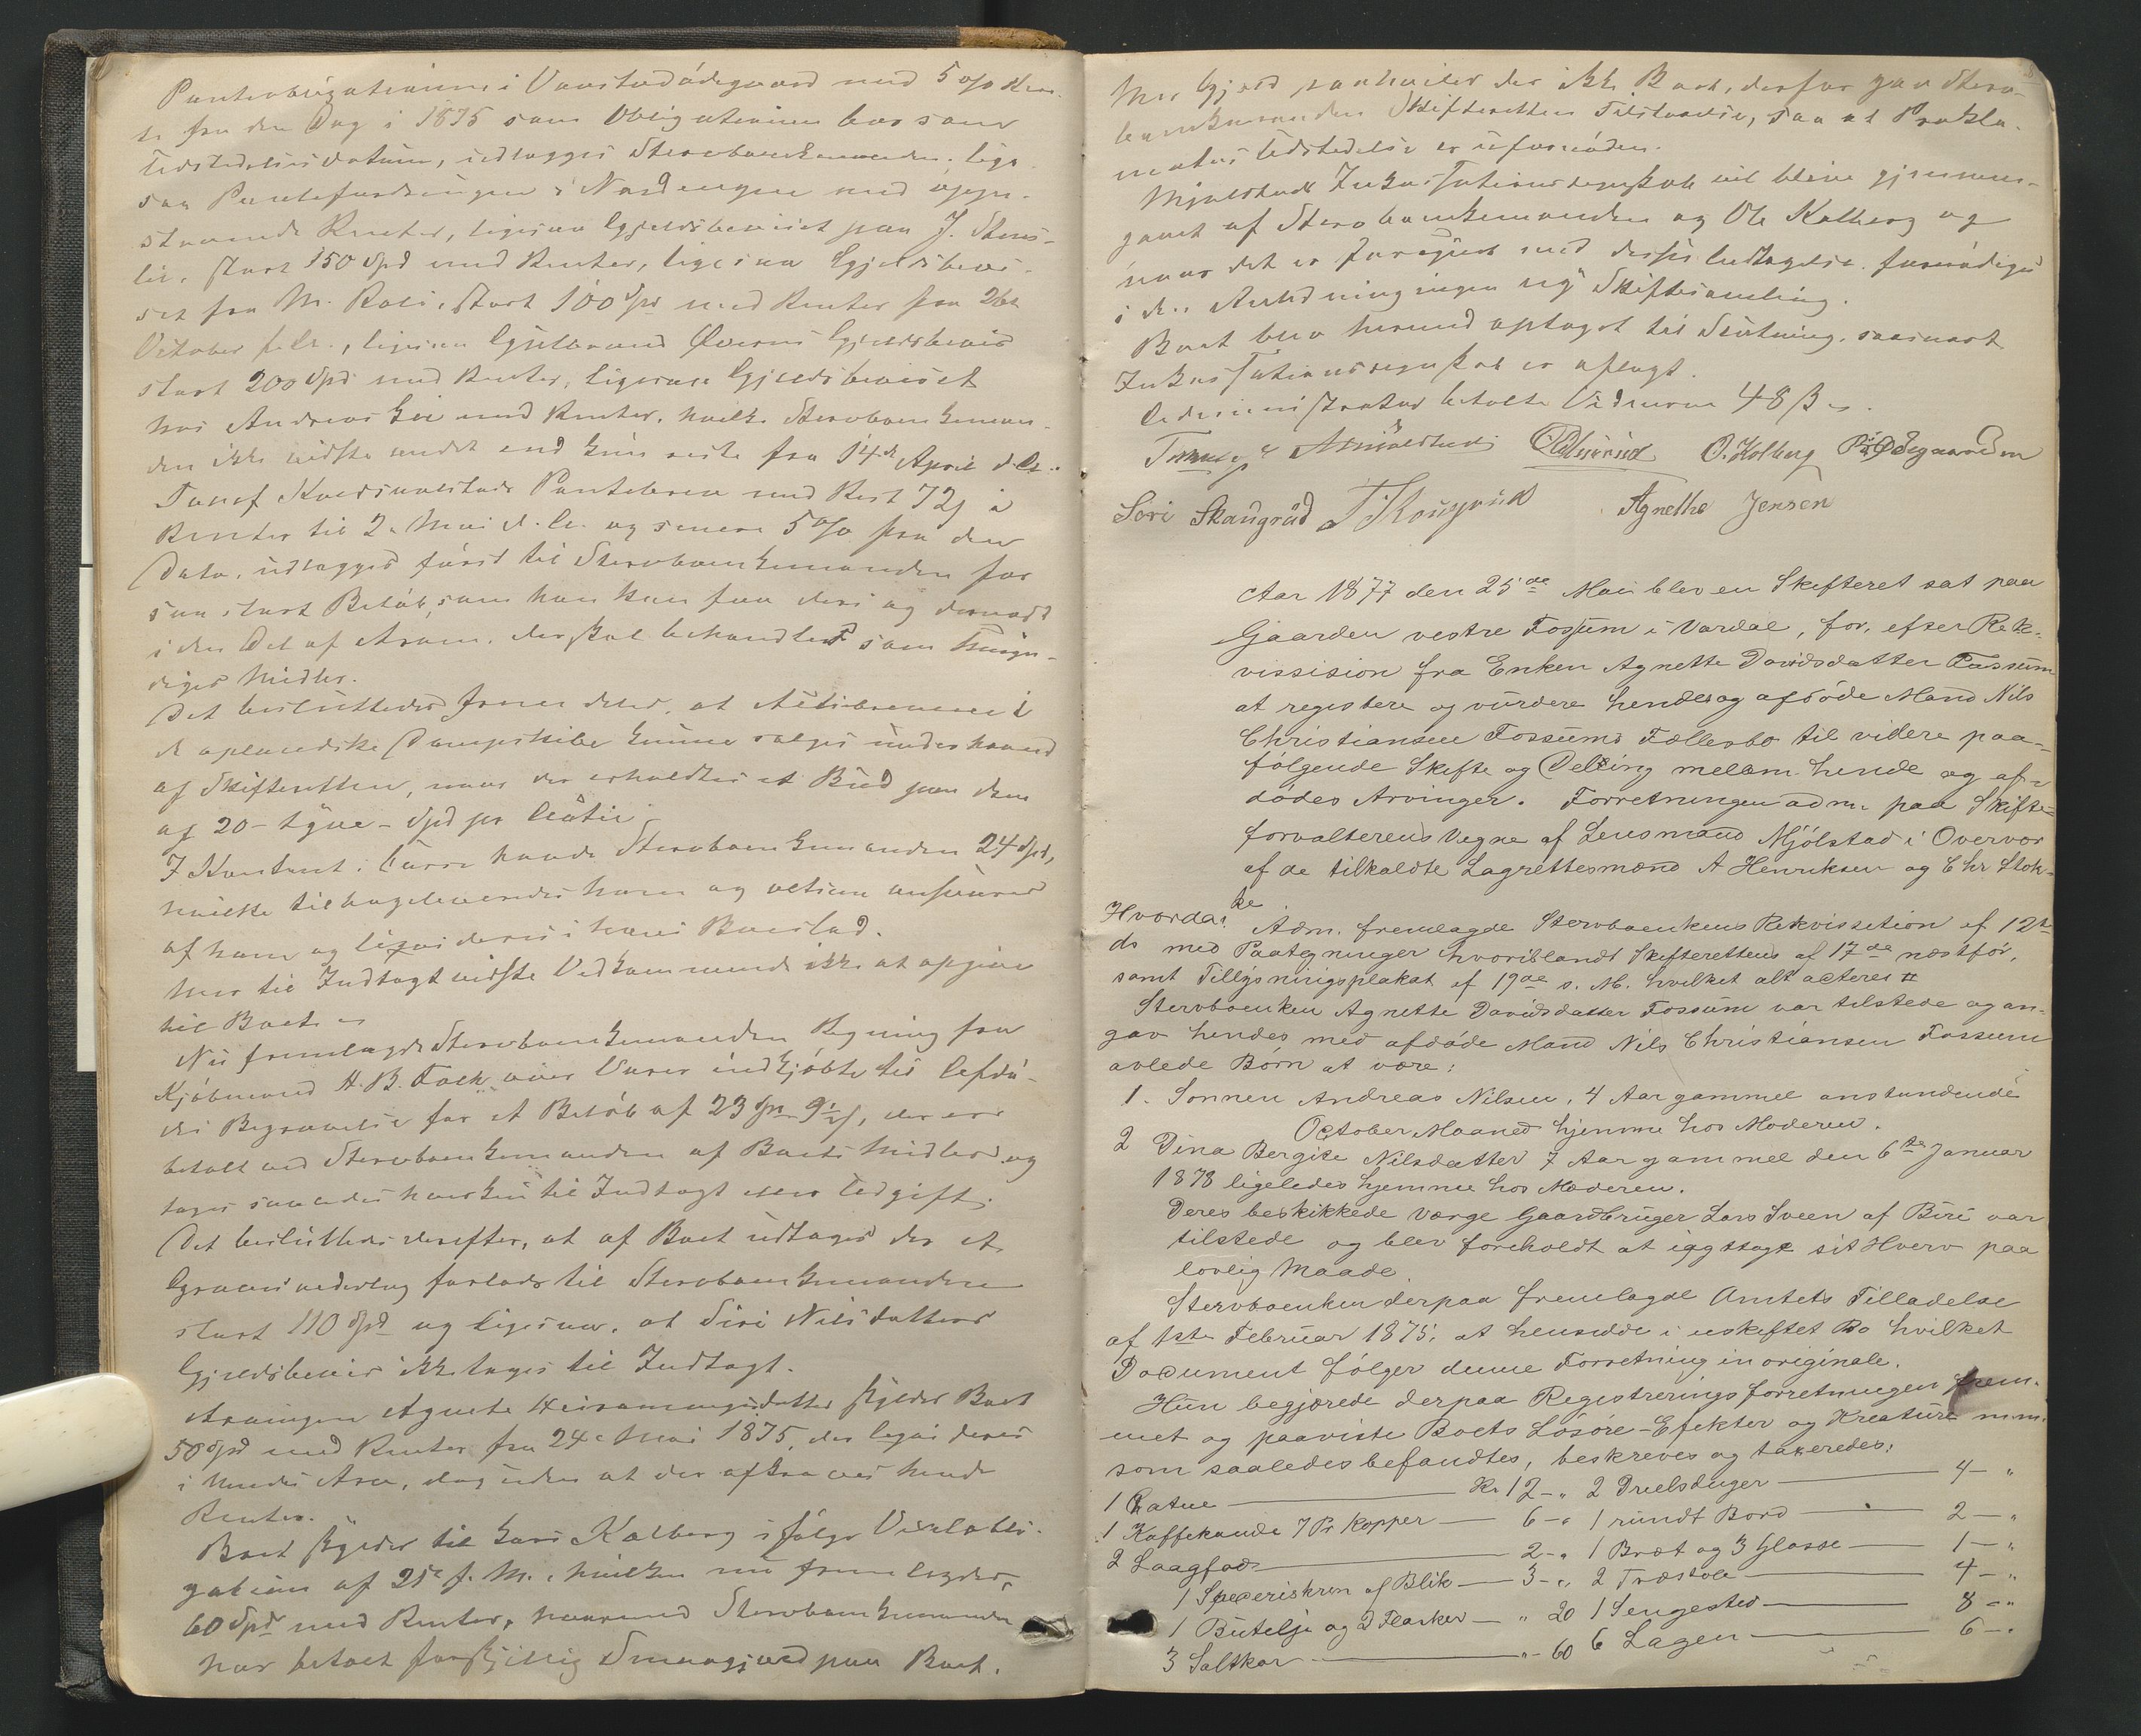 Panteobligationen i Vanstadødegaard med 5 o/o Ren-
te fra den Dag i 1875 som Obligationen har som
Udstedelsesdatum, udlægges Stervboenkemanden. lige
saa Pantefordringen i Nordengen med oppe-
staaende Renter, ligesaa Gjældsbeviset paa J. Stens-
lie, stort 150 Spd med Renter, ligesaa Gjældsbevi-
set fra M. Roli, stort 100 Spd med Renter fra 26de
October f. A., ligesaa Gulbrand Gjældsbevis
stort 200 Spd med Renter, ligesaa Gjældsbeviset
hos Andreas Lie med Renter, hvilke Stervboenkeman-
den ikke vidste andet end kun reste fra 14de April d. A.
Josef Pantebrev med Rest 72 s i
Renter til 2. Mai d. A. og senere 5 o/o fra den
Dato, udlægges først til Stervboenkemanden for
saa stort Beløb, som han kan faa deri og dernæst
i den Del af Arven, der skal behandles som Umyn-
diges Midler.
Det besluttedes fremdeles, at Actiebrevene i
de oplandske Dampskibe kunne sælges underhaand
af Skifteretten, naar der erholdtes et Bud paa dem
af 20 - tyve - Spd pr Actie.
I Kontant i Cassa havde Stervboenkemanden 24 Spd,
hvilke tilbageleveredes ham og ansvares
af ham og i hans Boeslod.
Mer til Indtægt vidste Vedkommende ikke at opgive
til Boet.
Nu fremlagde Stervboenkemanden Regning fra
Kjøbmand H. B. Falk over Varer indkjøbte til Afdø-
des Begravelse for et Beløb af 23 Spd 9½ s, der er
betalt ved Stervboenkemanden af Boets Midler og
tages saaledes hverken til Indtægt eller Udgift.
Det besluttedes derefter, at af Boet udtages der et
Gravsvederlag forlods til Stervboenkemanden
stort 110 Spd og ligesaa, at Siri Nilsdatters
Gjældsbevis ikke tages til Indtægt.
Arvingen Agnete skylder Boet
50 Spd med Renter fra 24de Mai 1875, der
i hendes Arv, dog uden at der afkræves hende
Renter.
Boet skylder til Kari Kalberg ifølge Vexelobli-
gation af 25de f. M., hvilken nu fremlægdes,
60 Spd med Renter, hvorimod Stervboenkemanden
har betalt forskjellig Smaagjæld paa Boet.
Mer Gjæld paahviler der ikke Boet, derfor gav Sterv-
boenkemanden Skifteretten Tilstaaelse, saa at Prokla-
matas Udstedelse er ufornøden.
Mjølstads Inkassationsregnskab vil blive gjennem-
gaaet af Stervboenkemanden og Ole Kalberg og
naar det er foregaaet med deres Vedtagelse fornødiges
i den Anledning ingen ny Skiftesamling.
Boet blev hermed optaget til Slutning, saasnart
Inkassationsregnskab er aflagt.
Administrator betalte Vidnerne 48 s.
O. Kolberg P. Ødegaarden
Siri Skaugrud Agnethe Jensen
Aar 1877 den 25de Mai blev en Skifteret sat paa
Gaarden vestre Fossum i Vardal, for, efter Rek-
vissision fra Enken Agnette Davidsdatter Fossum
at registere og vurdere hendes og afdøde Mand Nils
Christiansen Fossums Fællesbo til videre paa-
følgende Skifte og Deling melam hende og af-
dødes Arvinger. Forretningen adm. paa Skifte-
forvalterens Vegne af Lensmand Mjølstad i Overvær
af de tilkaldte Lagrettesmænd A Henriksen og Chr Stok-
ke
Hvorda: Adm. fremlagde Stervboenkens Rekvissetion af 12te
ds med Paategninger hvoriblandt Skifterettens af 17de næstfør,
samt Tillysningsplakat af 19de s. M. hvilket alt acteres #
Stervboenken Agnette Davidsdatter Fossum var tilstede og an-
gav hendes med afdøde Mand Nils Christiansen Fossum
avlede Børn at være:
1. Sønnen Andreas Nilsen, 4 Aar gammel anstundende
October Maaned hjemme hos Moderen.
2 Dina Bergite Nilsdatter 7 Aar gammel den 6te Januar
1878 ligeledes hjemme hos Moderen.
Deres beskikkede Værge Gaardbruger Lars Sveen af Biri var
tilstede og blev foreholdt at iagttage sit Hverv paa
lovlig Maade.
Stervboenken derpaa fremlagde Amtets Tilladelse
af 1ste Februar 1875, at hensidde i uskiftet Bo hvilket
Document følger denne Forretning in originale.
Hun begjærede derpaa Registreringsforretningen frem-
met og paaviste Boets Løsøre-Efekter og Kreature m.m.
som saaledes befandtes, beskreves og taxeredes:
1 Kr. 12 - „ 2 Dreelsduger 4 - „
1 Kaffekande 7 Pr Kopper 6 - „ 1 rundt Bord 2 - „
2 Laagfade 2 - „ 1 Bræt og 3 Glasse 1 - „
1 Speceriskrin af Blik 3 - „ 2 Træstole 4 - „
1 Butelje og 2 Flasker „ 20 1 Sengested 8 - „
3 Saltkar „ - 60 6 Lagen 6 - „